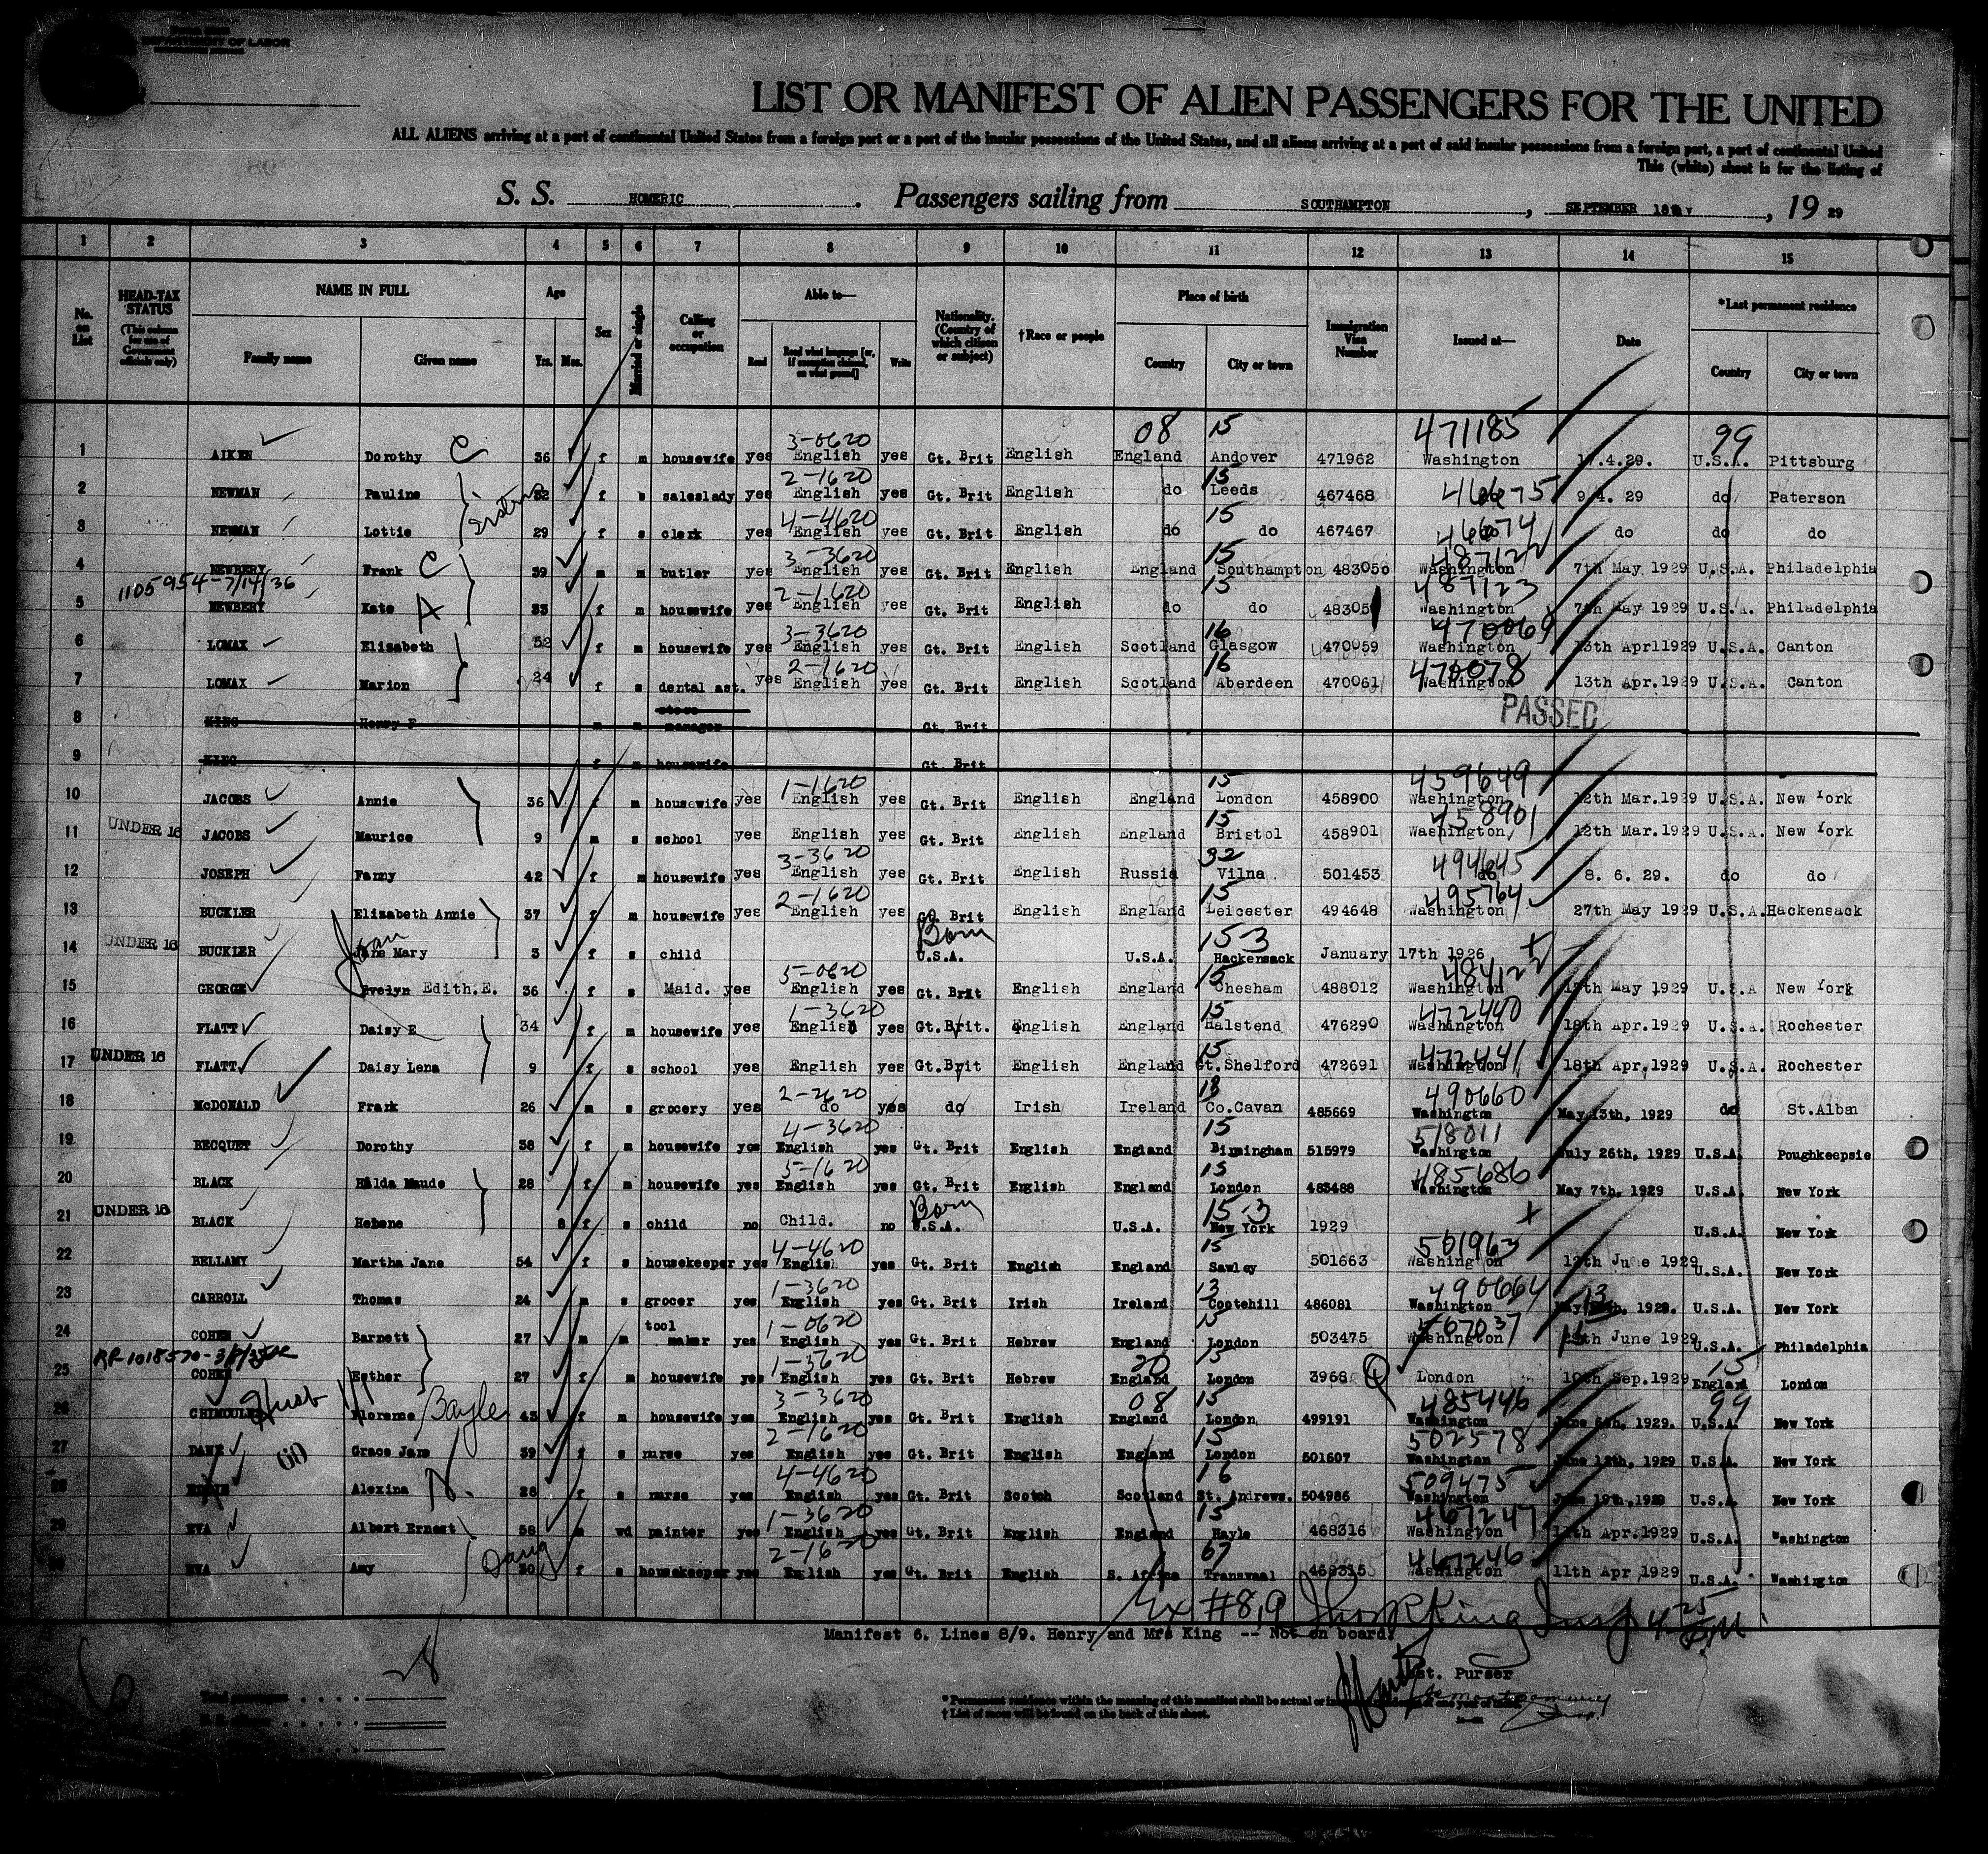 DEPARTMENT OF LABOR
LIST OR MANIFEST OF ALIEN PASSENGERS FOR THE UNITED
ALL ALIENS arriving at a port of continental United States from a foreign port or a port of the insular possessions of the United States, and all aliens arriving at a port of said insular possessions from a foreign port, a port of continental United
This (white) sheet is for the listing of
S. S. HOMERIC . Passengers sailing from SOUTHAMPTON , SEPTEMBER 18 , 19 29
1 2 3 4 5 6 7 8 9 10 11 12 13 14 15
No. on List HEAD-TAX STATUS (This column for use of Government officials only) NAME IN FULL Family name Given name Age Yrs. Mos. Sex Married or single Calling or occupation Able to— Read Read what language [or, if exemption claimed, on what ground] Write Nationality. (Country of which citizen or subject) †Race or people Place of birth Country City or town Immigration Visa Number Issued at— Date *Last permanent residence Country City or town
08 15 471185 99
1 AIKEN Dorothy C 36 f m housewife yes 3-0620 English yes Gt. Brit English England Andover 471962 Washington 17.4.29. U.S.A. Pittsburg
2 NEWMAN Pauline sisters 32 f s saleslady yes 2-1620 English yes Gt. Brit English do 15 Leeds 467468 46675 9/4. 29 do Paterson
3 NEWMAN Lottie 29 f s clerk yes 4-4620 English yes Gt. Brit English do 15 do 467467 46674 do do do
4 NEWBERY Frank C 39 m m butler yes 3-3620 English yes Gt. Brit English England 15 Southampton 483050 487122 Washington 7th May 1929 U.S.A. Philadelphia
1105954-7/14/36
5 NEWBERY Kate A 33 f m housewife yes 2-1620 English yes Gt. Brit English do 15 do 48305 487123 Washington 7th May 1929 U.S.A. Philadelphia
6 LOMAX Elizabeth 52 f m housewife yes 3-3620 English yes Gt. Brit English Scotland 16 Glasgow 470059 470069 Washington 13th April1929 U.S.A. Canton
7 LOMAX Marion 24 f s dental ast. yes 2-1620 English yes Gt. Brit English Scotland 16 Aberdeen 470061 470078 Washington 13th Apr.1929 U.S.A. Canton
PASSED
8 KING Henry F m m store manager Gt. Brit
9 KING f m housewife Gt. Brit
10 JACOBS Annie 36 f m housewife yes 1-1620 English yes Gt. Brit English England 15 London 458900 459649 Washington 12th Mar.1929 U.S.A. New York
11 UNDER 16 JACOBS Maurice 9 m s school yes English yes Gt. Brit English England 15 Bristol 458901 458901 Washington 12th Mar.1929 U.S.A. New York
12 JOSEPH Fanny 42 f m housewife yes 3-3620 English yes Gt. Brit English Russia 32 Vilna 501453 494645 do 8. 6. 29. do do
13 BUCKLER Elizabeth Annie 37 f m housewife yes 2-1620 English yes Gt. Brit English England 15 Leicester 494648 495764 Washington 27th May 1929 U.S.A. Hackensack
14 UNDER 16 BUCKLER Joan Jane Mary 3 f s child Born U.S.A. U.S.A. 15-3 Hackensack January 17th 1926
15 GEORGE Evelyn Edith.E. 36 f s Maid. yes 5-0620 English yes Gt. Brit English England 15 Chesham 488012 484122 Washington 17th May 1929 U.S.A New York
16 FLATT Daisy E 34 f m housewife yes 1-3620 English yes Gt.Brit. English England 15 Halstend 476290 472440 Washington 18th Apr.1929 U.S.A. Rochester
17 UNDER 16 FLATT Daisy Lena 9 f s school yes English yes Gt.Brit English England 15 Gt.Shelford 472691 472441 Washington 18th Apr.1929 U.S.A. Rochester
18 McDONALD Frank 26 m s grocery yes 2-2620 do yes do Irish Ireland 13 Co.Cavan 485669 490660 Washington May 13th, 1929 do St.Alban
19 BECQUET Dorothy 38 f m housewife yes 4-3620 English yes Gt. Brit English England 15 Birmingham 515979 518011 Washington July 26th, 1929 U.S.A. Poughkeepsie
20 BLACK Hilda Maude 28 f m housewife yes 5-1620 English yes Gt. Brit English England 15 London 483488 485686 Washington May 7th. 1929 U.S.A. New York
21 UNDER 16 BLACK Helene 8 f s child no Child. no Born U.S.A. U.S.A. 15-3 New York 1929 U.S.A. New York
22 BELLAMY Martha Jane 54 f s housekeeper yes 4-4620 English yes Gt. Brit English England 15 Sawley 501663 501963 Washington 12th June 1929 U.S.A. New York
23 CARROLL Thomas 24 m s grocer yes 1-3620 English yes Gt. Brit Irish Ireland 13 Cootehill 486081 490664 Washington May 13 1929. U.S.A. New York
24 COHEN Barnett 27 m m tool maker yes 1-0620 English yes Gt. Brit Hebrew England 15 London 503475 567037 Washington June 1929 U.S.A. Philadelphia
RP-1018570
25 COHEN Esther 27 f m housewife yes 1-3620 English yes Gt. Brit Hebrew 20 England 15 London 3968 Q London 10th Sep.1929 15 England London
26 Florence Bayle 43 f m housewife yes 3-3620 English yes Gt. Brit English 08 England 15 London 499191 485446 Washington June 6th, 1929. 99 U.S.A. New York
27 DANE Grace Jane 39 f s nurse yes 2-1620 English yes Gt. Brit English England 15 London 501607 502578 Washington June 12th, 1929 U.S.A. New York
28 Alexina N. 28 f s nurse yes 4-4620 English yes Gt. Brit Scotch Scotland 16 St. Andrews. 504986 509475 Washington June 19th,1929 U.S.A. New York
29 EVA Albert Ernest 58 m wd painter yes 1-3620 English yes Gt. Brit English England 15 Hayle 468316 467247 Washington 11th Apr.1929 U.S.A. Washington
30 EVA Amy Daug 30 f s housekeeper yes 2-1620 English yes Gt. Brit English S. Africa 67 Transvaal 468315 467246 Washington 11th Apr 1929 U.S.A. Washington
Ex #8,9 King Insp 4 25 PM
Manifest 6. Lines 8/9. Henry and Mrs King -- Not on board.
28
Asst. Purser
Total passengers
* Permanent residence within the meaning of this manifest shall be actual or intended residence of one year or more.
† List of races will be found on the back of this sheet.